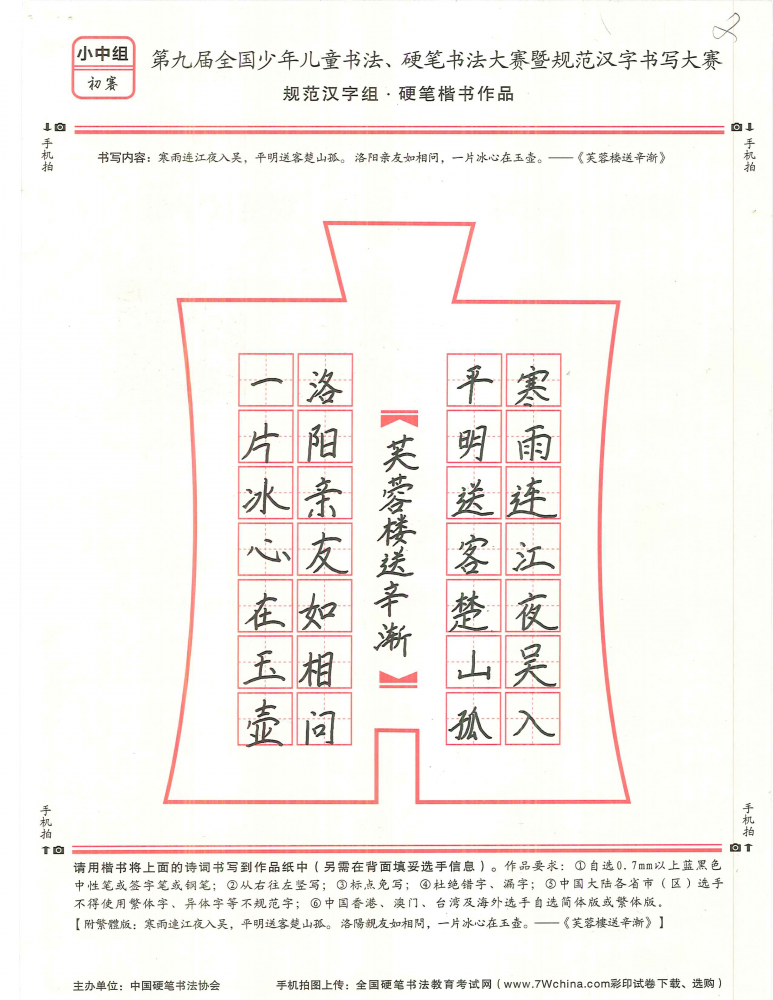 小中组
初赛
第九届全国少年儿童书法、硬笔书法大赛暨规范汉字书写大赛
规范汉字组·硬笔楷书作品
手机拍
手机拍
书写内容：寒雨连江夜入吴，平明送客楚山孤。洛阳亲友如相问，一片冰心在玉壶。——《芙蓉楼送辛渐》
寒雨连江夜吴入
平明送客楚山孤
芙蓉楼送辛渐
洛阳亲友如相问
一片冰心在玉壶
手机拍
手机拍
请用楷书将上面的诗词书写到作品纸中（另需在背面填妥选手信息）。作品要求：①自选0.7mm以上蓝黑色
中性笔或签字笔或钢笔；②从右往左竖写；③标点免写；④杜绝错字、漏字；⑤中国大陆各省市（区）选手
不得使用繁体字、异体字等不规范字；⑥中国香港、澳门、台湾及海外选手自选简体版或繁体版。
【附繁體版：寒雨連江夜入吴，平明送客楚山孤。洛陽親友如相問，一片冰心在玉壺。——《芙蓉楼送辛渐》】
主办单位：中国硬笔书法协会
手机拍图上传：全国硬笔书法教育考试网（www.7Wchina.com彩印试卷下载、选购）